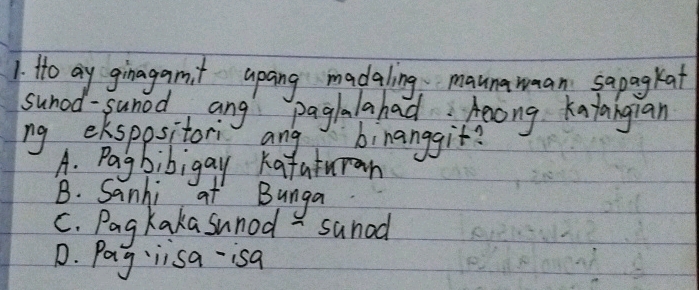 1. Ito ay ginagamit upang madaling maunawaan sapagkat
sunod-sunod ang paglalahad. Anong katangian
ng ekspositori ang binanggit?
A. Pagbibigay katuturan
B. Sanhi at Bunga
C. Pagkakasunod-sunod
D. Pag-iisa-isa